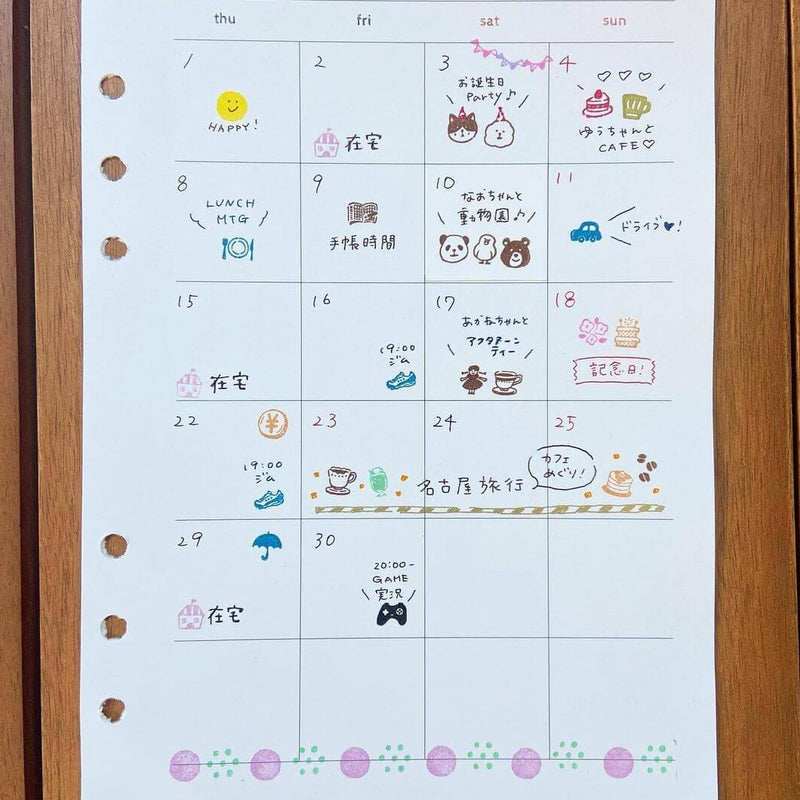 thu fri sat sun
1 2 3 4
HAPPY!
在宅
お誕生日
Party♪
ゆうちゃんと
CAFE♡
8 9 10 11
LUNCH
MTG
手帳時間
なおちゃんと
動物園♪
ドライブ♥!
15 16 17 18
在宅
19:00
ジム
あかねちゃんと
アフタヌーン
ティー
記念日!
22 23 24 25
¥
19:00
ジム
名古屋旅行
カフェ
めぐり!
29 30
在宅
20:00-
GAME
実況